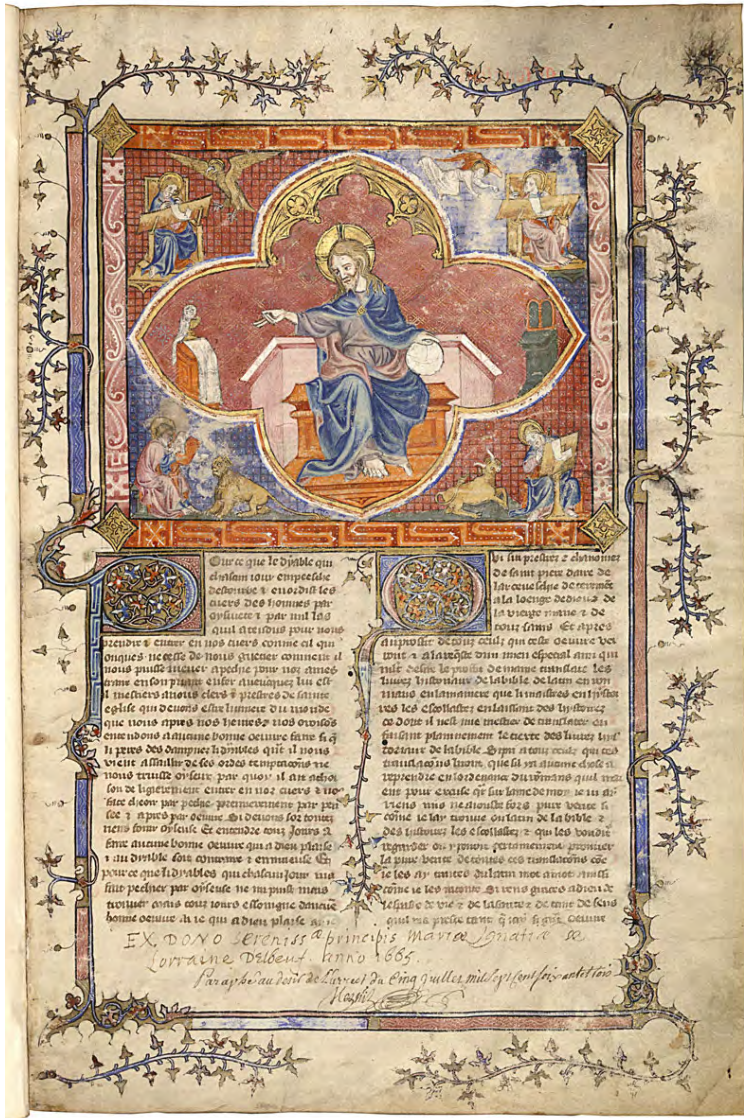 Pour ce que le dyable qui
chascun iour empeesche
destourbe & enordist les
cuers des hommes par
oyseuete & par mil las
quil a tendus pour nous
prendre & entrer en nos cuers comme cil qui
onques ne cesse de nous guetier comment il
nous puisse mener a pechie pour nos ames
traire en son puant enfer auecques lui est
il mestiers a nous clers & prestres de sainte
eglise qui deuons estre lumiere du monde
que nous apres nos heures & nos orisons
entendons a aucune bonne oeuure faire si q
li peres des dampnez li dyables quant il nous
vient assaillir de ses ordes temptacions ne
nous truisse oyseux par quoy il ait achoi
son de ligierement entrer en nos cuers & nous
face cheoir par pechie premierement par pen
see & apres par oeuure Si deuons sor toutes
riens fouir oyseuse Et entendre touz iours a
faire aucune bonne oeuure qui a dieu plaise
& au dyable soit contraire & ennuieuse Et
pour ce que li dyables qui chascun iour me
fait pechier par oyseuse ne me puist mais
trouuer mais touz iours essoingne daucune
bonne oeuure ai ie qui a dieu plaise
Qui sui prestres & chanoines
de saint pierre daire de
larceueschie de
a la loenge de dieu & de
la vierge marie & de
touz sains Et apres
au proufit de touz ceulz qui ceste oeuure ver
ront & a la requeste dun mien especial ami qui
moult desire le proufit de mame translate les
liures historiaux de la bible de latin en rom
mans en la maniere que li maistres en hystoi
res les escollastre en laissant des hystoires
ce dont il nest mie mestier de translater en
faisant plainnement le texte des liures hys
toriaux de la bible Si pri a touz ceulz qui ces
translacions liront que sil y a aucune chose a
reprendre en lordenance du rommans quil
ent pour excuse car sur lame de moy ie ni ai
riens mis ne aiouste fors pure verite si
comme ie lay trouue ou latin de la bible &
des hystoires les escollastres & qui les vondra
regarder on y porra certainement prouuer
la pure verite de toutes ces translacions comme
ie les ay traites du latin mot a mot aussi
comme ie les nomme Si rens graces a dieu de
lespasse de vie & de la sante & de tant de sens
quil ma preste tant que iay oeuure
EX DONO Sereniss æ principis Mariæ Ignatiæ
Lorraine Delbeuf. anno 1665.
Paraphé au desir de l'arrest du Cinq Juillet mil sept cent soixante trois
Mesnil